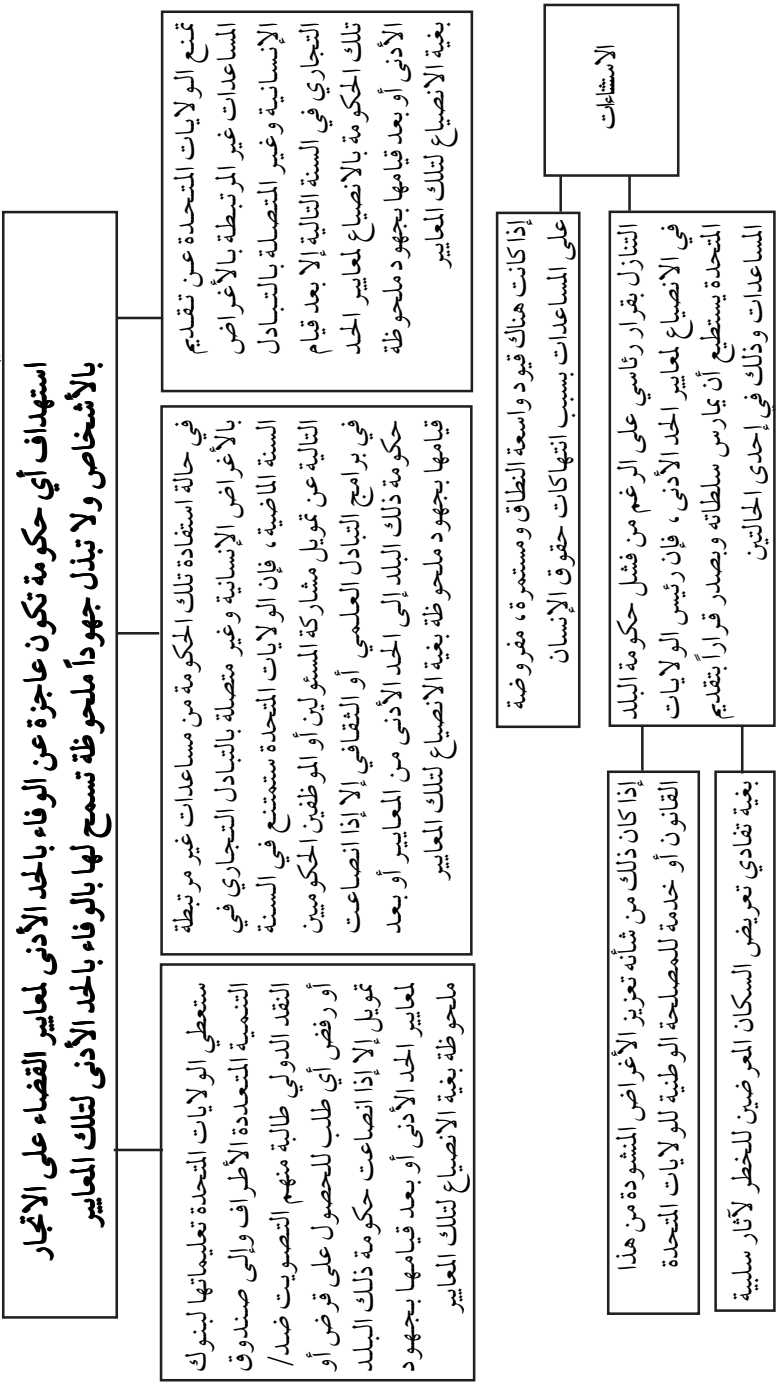 استهداف أي حكومة تكون عاجزة عن الوفاء بالحد الأدنى لمعايير القضاء على الاتجار
بالأشخاص ولا تبذل جهوداً ملحوظة تسمح لها بالوفاء بالحد الأدنى لتلك المعايير
تمنع الولايات المتحدة عن تقديم
المساعدات غير المرتبطة بالأغراض
الإنسانية وغير المتصلة بالتبادل
التجاري في السنة التالية إلا بعد قيام
تلك الحكومة بالانصياع لمعايير الحد
الأدنى أو بعد قيامها بجهود ملحوظة
بغية الانصياع لتلك المعايير
في حالة استفادة تلك الحكومة من مساعدات غير مرتبطة
بالأغراض الإنسانية وغير متصلة بالتبادل التجاري في
السنة الماضية، فإن الولايات المتحدة ستمتنع في السنة
التالية عن تمويل مشاركة المسئولين أو الموظفين الحكوميين
في برامج التبادل العلمي أو الثقافي إلا إذا انصاعت
حكومة ذلك البلد إلى الحد الأدنى من المعايير أو بعد
قيامها بجهود ملحوظة بغية الانصياع لتلك المعايير
ستعطي الولايات المتحدة تعليماتها لبنوك
التنمية المتعددة الأطراف وإلى صندوق
النقد الدولي طالبة منهم التصويت ضد/
أو رفض أي طلب للحصول على قرض أو
تمويل إلا إذا انصاعت حكومة ذلك البلد
لمعايير الحد الأدنى أو بعد قيامها بجهود
ملحوظة بغية الانصياع لتلك المعايير
الاستثناءات
إذا كانت هناك قيود واسعة النطاق ومستمرة، مفروضة
على المساعدات بسبب انتهاكات حقوق الإنسان
التنازل بقرار رئاسي على الرغم من فشل حكومة البلد
في الانصياع لمعايير الحد الأدنى، فإن رئيس الولايات
المتحدة يستطيع أن يمارس سلطاته وبصدر قراراً بتقديم
المساعدات وذلك في إحدى الحالتين
إذا كان ذلك من شأنه تعزيز الأغراض المنشودة من هذا
القانون أو خدمة للمصلحة الوطنية للولايات المتحدة
بغية تفادي تعريض السكان المعرضين للخطر لآثار سلبية